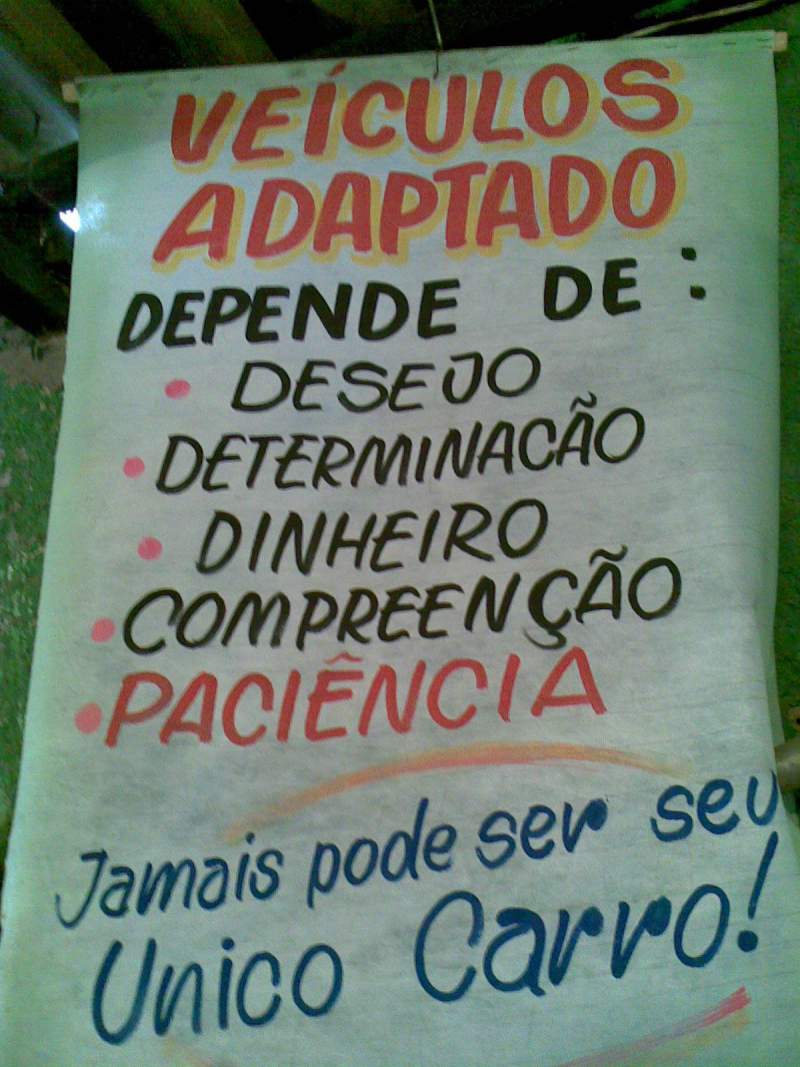 VEÍCULOS
ADAPTADO
DEPENDE DE:
• DESEJO
• DETERMINACÃO
• DINHEIRO
• COMPREENÇÃO
• PACIÊNCIA
Jamais pode ser seu
Unico Carro!